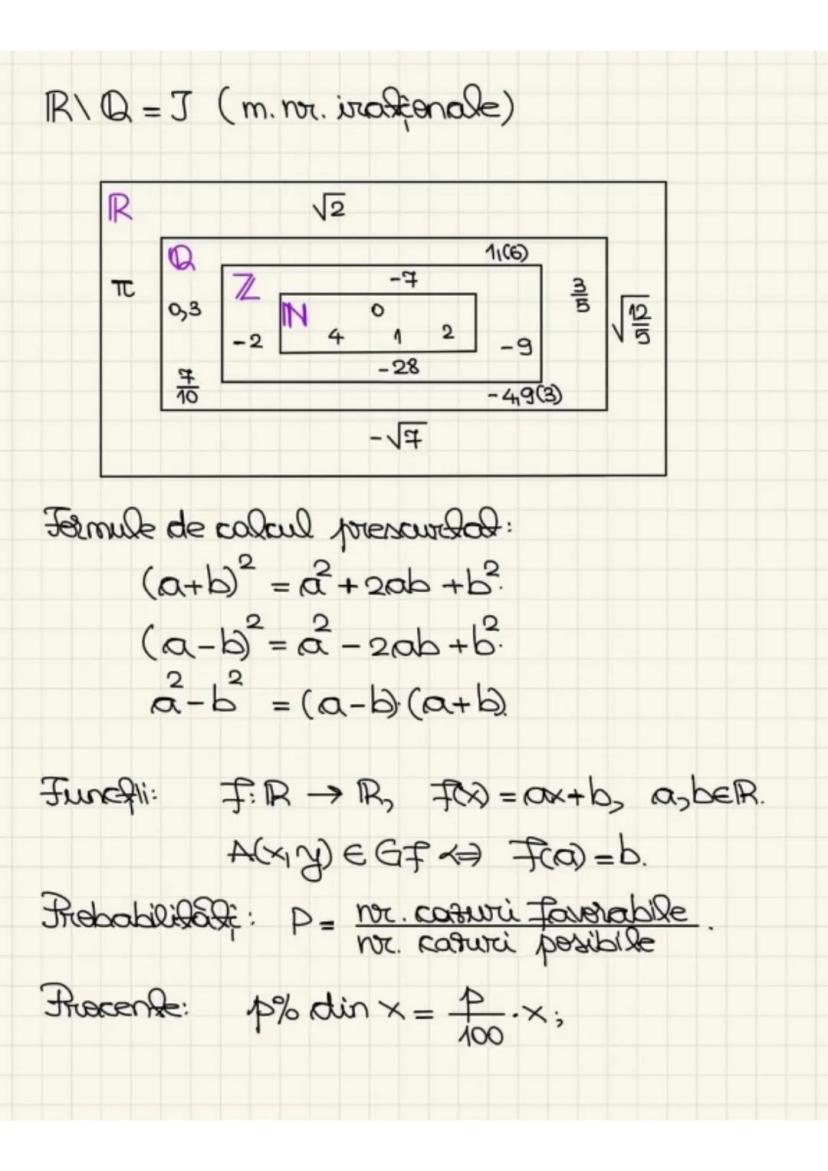 ℝ\ℚ = I (m. nr. iraționale)
ℝ √2
ℚ 1,(6)
π ℤ -7 3/5
0,3 ℕ 0 √(12/5)
-2 4 1 2 -9
7/10 -28
-4,9(3)
-√7
Formule de calcul prescurtat:
(a+b)² = a² + 2ab + b².
(a-b)² = a² - 2ab + b².
a² - b² = (a-b)·(a+b).
Funcții: f: ℝ → ℝ, f(x) = ax+b, a,b∈ℝ.
A(x,y) ∈ Gf ⇔ f(a) = b.
Probabilități: P = nr. cazuri favorabile / nr. cazuri posibile.
Procente: p% din x = p/100 · x;